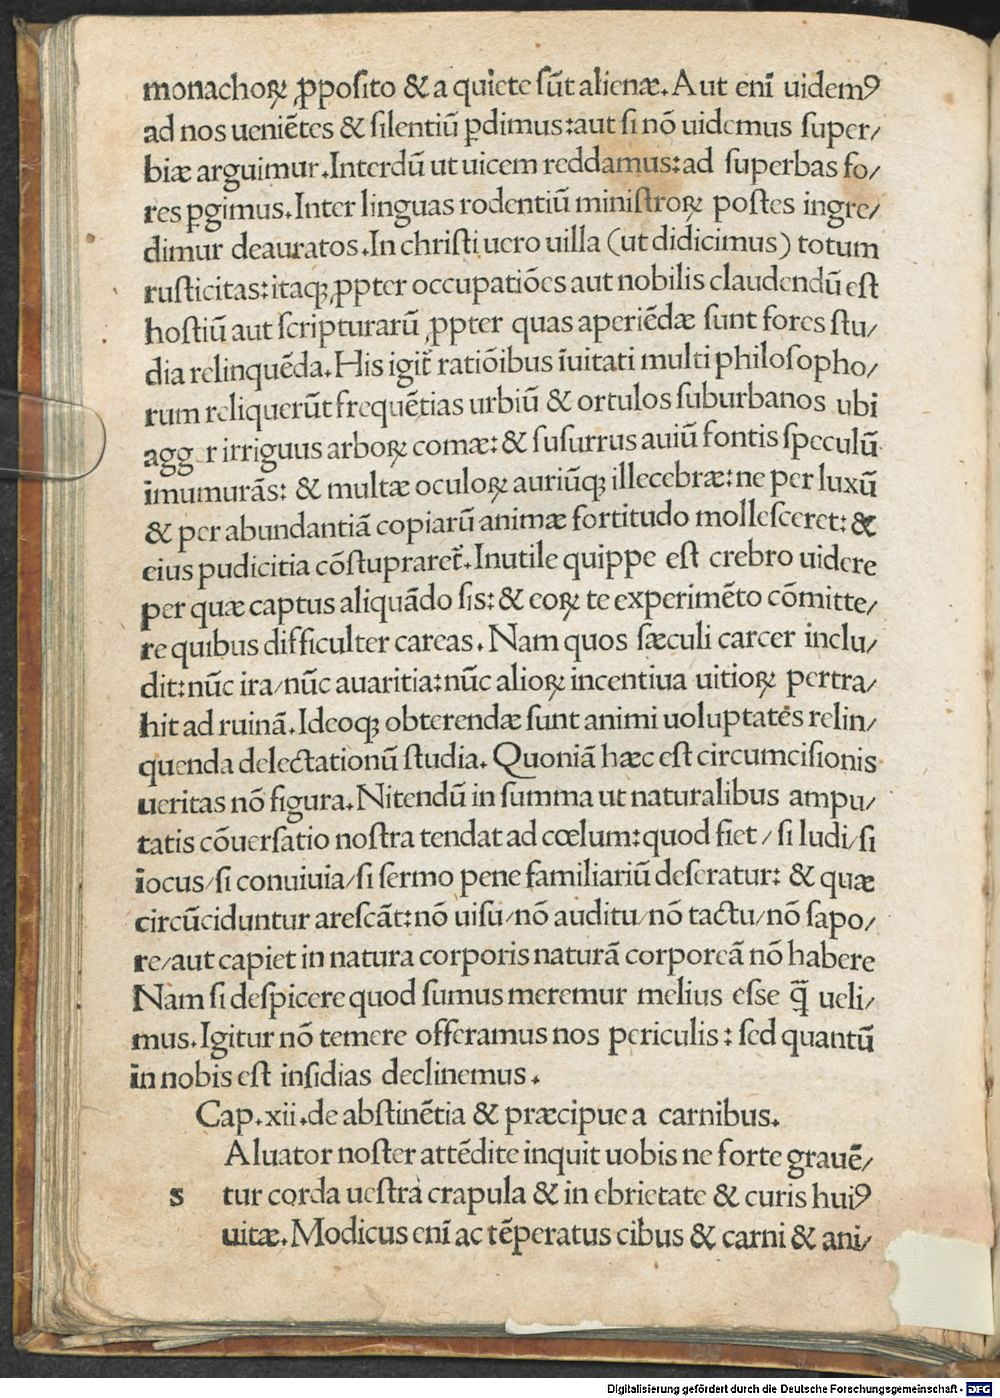 monachoꝝ ꝓposito & a quiete sũt alienæ. Aut enĩ uidemꝰ
ad nos ueniẽtes & silentiũ ꝑdimus: aut si nõ uidemus super/
biæ arguimur. Interdũ ut uicem reddamus: ad superbas fo/
res ꝑgimus. Inter linguas rodentiũ ministroꝝ postes ingre/
dimur deauratos. In christi uero uilla (ut didicimus) totum
rusticitas: itaqꝫ ꝓpter occupatiões aut nobilis claudendũ est
hostiũ aut scripturarũ ꝓpter quas aperiẽdæ sunt fores stu/
dia relinquẽda. His igit̃ ratiõibus ĩuitati multi philosopho/
rum reliquerũt frequẽtias urbiũ & ortulos suburbanos ubi
agg r irriguus arboꝝ comæ: & susurrus auiũ fontis speculũ
ĩmumurãs: & multæ oculoꝝ auriũqꝫ illecebræ: ne per luxũ
& per abundantiã copiarũ animæ fortitudo mollesceret: &
eius pudicitia cõstupraret̃. Inutile quippe est crebro uidere
per quæ captus aliquãdo sis: & eoꝝ te experimẽto cõmitte/
re quibus difficulter careas. Nam quos sæculi carcer inclu/
dit: nũc ira/nũc auaritia: nũc alioꝝ incentiua uitioꝝ pertra/
hit ad ruinã. Ideoqꝫ obterendæ sunt animi uoluptates relin/
quenda delectationũ studia. Quoniã hæc est circumcisionis
ueritas nõ figura. Nitendũ in summa ut naturalibus ampu/
tatis cõuersatio nostra tendat ad cœlum: quod fiet/si ludi/si
iocus/si conuiuia/si sermo pene familiariũ deseratur: & quæ
circũciduntur arescãt: nõ uisu/nõ auditu/nõ tactu/nõ sapo/
re/aut capiet in natura corporis naturã corporeã nõ habere
Nam si despicere quod sumus meremur melius esse q̃ ueli/
mus. Igitur nõ temere offeramus nos periculis: sed quantũ
in nobis est insidias declinemus.
Cap. xii. de abstinẽtia & præcipue a carnibus.
Aluator noster attẽdite inquit uobis ne forte grauẽ/
s tur corda uestra crapula & in ebrietate & curis huiꝰ
uitæ. Modicus enĩ ac tẽperatus cibus & carni & ani/
Digitalisierung gefördert durch die Deutsche Forschungsgemeinschaft - DFG